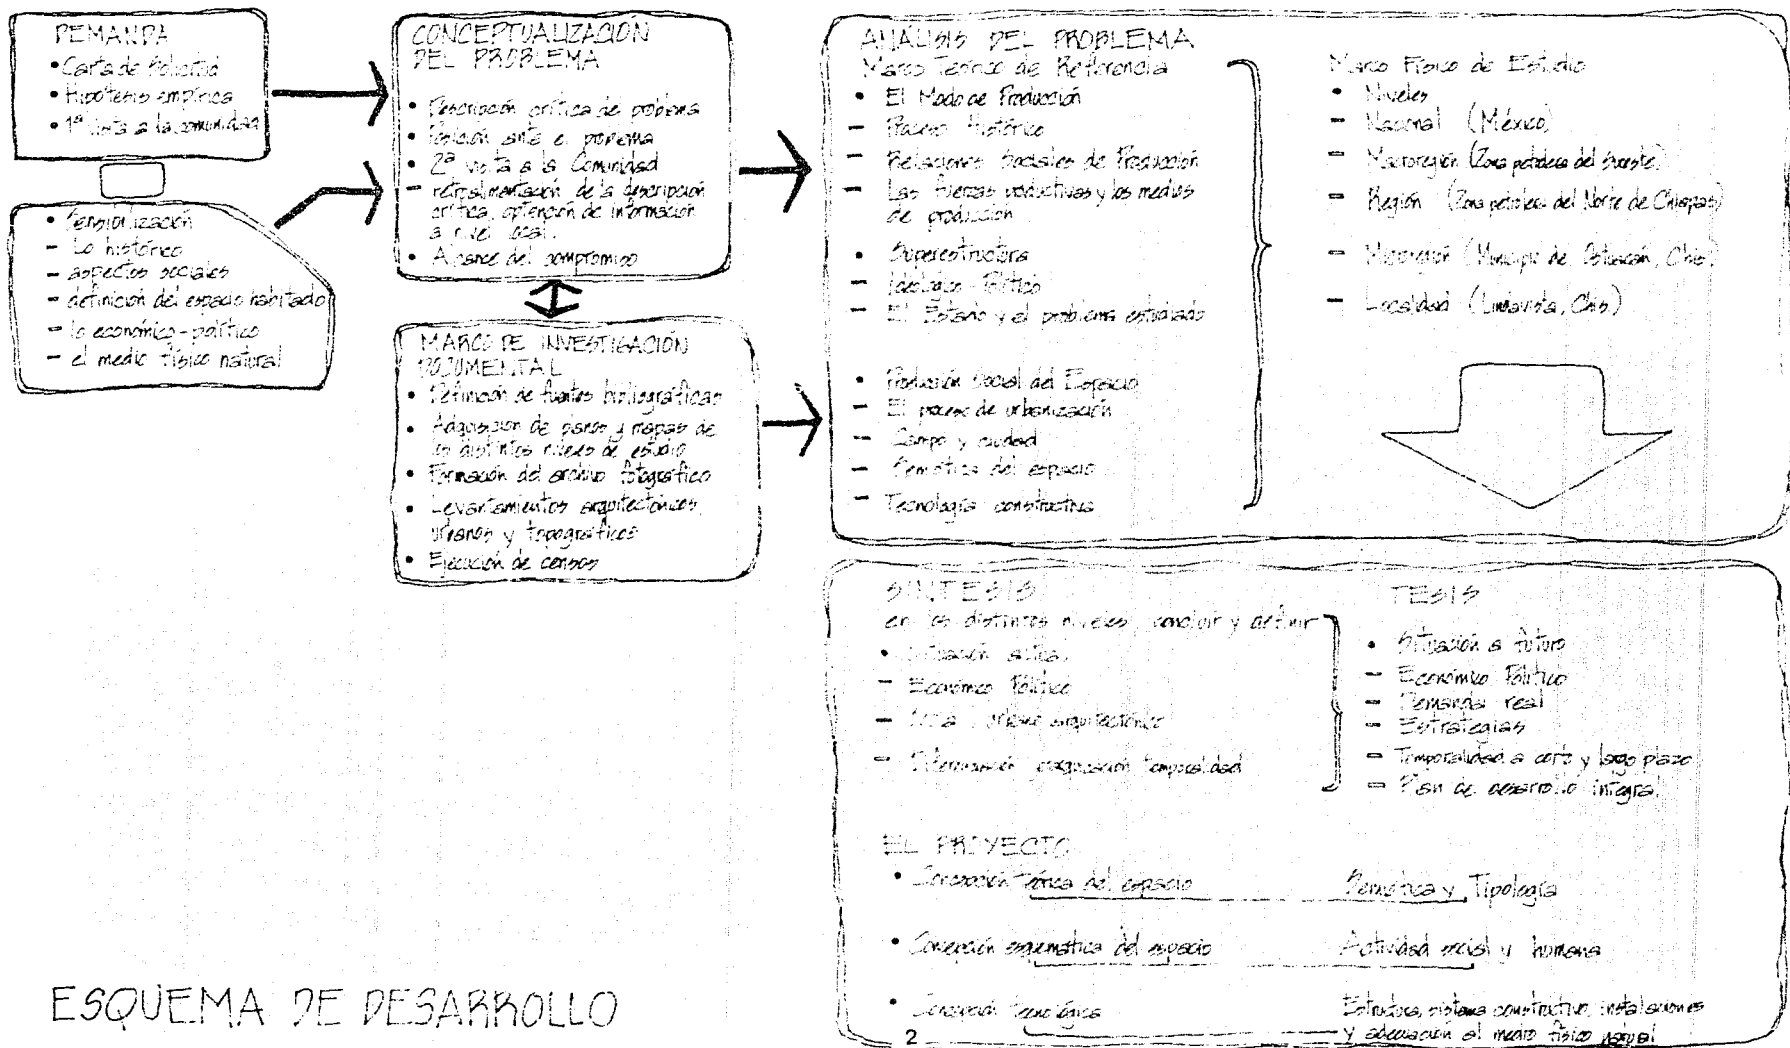 DEMANDA
• Carta de Solicitud
• Hipótesis empírica
• 1ª visita a la comunidad
• Sensibilización
- Lo histórico
- aspectos sociales
- definición del espacio habitado
- lo económico-político
- el medio físico natural
CONCEPTUALIZACIÓN
DEL PROBLEMA
• Descripción crítica del problema
• Posición ante el problema
• 2ª visita a la Comunidad
- retroalimentación de la descripción
crítica, obtención de información
a nivel local.
• Alcance del compromiso
MARCO DE INVESTIGACIÓN
DOCUMENTAL
• Definición de fuentes bibliográficas
• Adquisición de planos y mapas de
los distintos niveles de estudio
• Formación del archivo fotográfico
• Levantamientos arquitectónicos,
urbanos y topográficos
• Ejecución de censos
ANÁLISIS DEL PROBLEMA
Marco Teórico de Referencia
• El Modo de Producción
- Proceso Histórico
- Relaciones Sociales de Producción
- Las fuerzas productivas y los medios
de producción
• Superestructura
- Ideológico-Político
- El Estado y el problema estudiado
• Producción Social del Espacio
- El proceso de urbanización
- Campo y ciudad
- Semiótica del espacio
- Tecnología constructiva
Marco Físico de Estudio
• Niveles
- Nacional (México)
- Macroregión (Zona petrolera del Sureste)
- Región (Zona petrolera del Norte de Chiapas)
- Microregión (Municipio de Ostuacán, Chis.)
- Localidad (Lindavista, Chis.)
SINTESIS
en los distintos niveles, concluir y definir
• Situación actual
- Económico Político
- urbano arquitectónico
- temporalidad
TESIS
• Situación a futuro
- Económico Político
- Demanda real
- Estrategias
- Temporalidad a corto y largo plazo
- Plan de desarrollo integral
EL PROYECTO
• Concepción teórica del espacio Semiótica y Tipología
• Concepción esquemática del espacio Actividad social y humana
• Concepción tecnológica Estructura, sistema constructivo, instalaciones
y adecuación al medio físico natural
ESQUEMA DE DESARROLLO
2